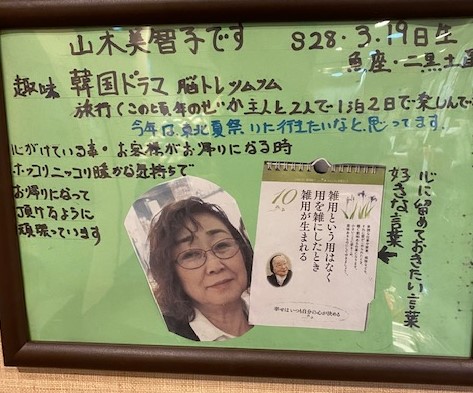 山木美智子です
S28・3.19日生
魚座・二黒土星
趣味 韓国ドラマ 脳トレツムツム
旅行(このころ年のせいか主人と2人で1泊2日で楽しんで
今年は、東北夏祭りに行きたいなと、思ってます。
心がけている事・お客様がお帰りになる時
ホッコリニッコリ暖かな気持ちで
お帰りになって
頂けるように
頑張っています
心に留めておきたい言葉
好きな言葉
10
雑用という用はなく
用を雑にしたとき
雑用が生まれる
幸せはいつも自分の心が決める